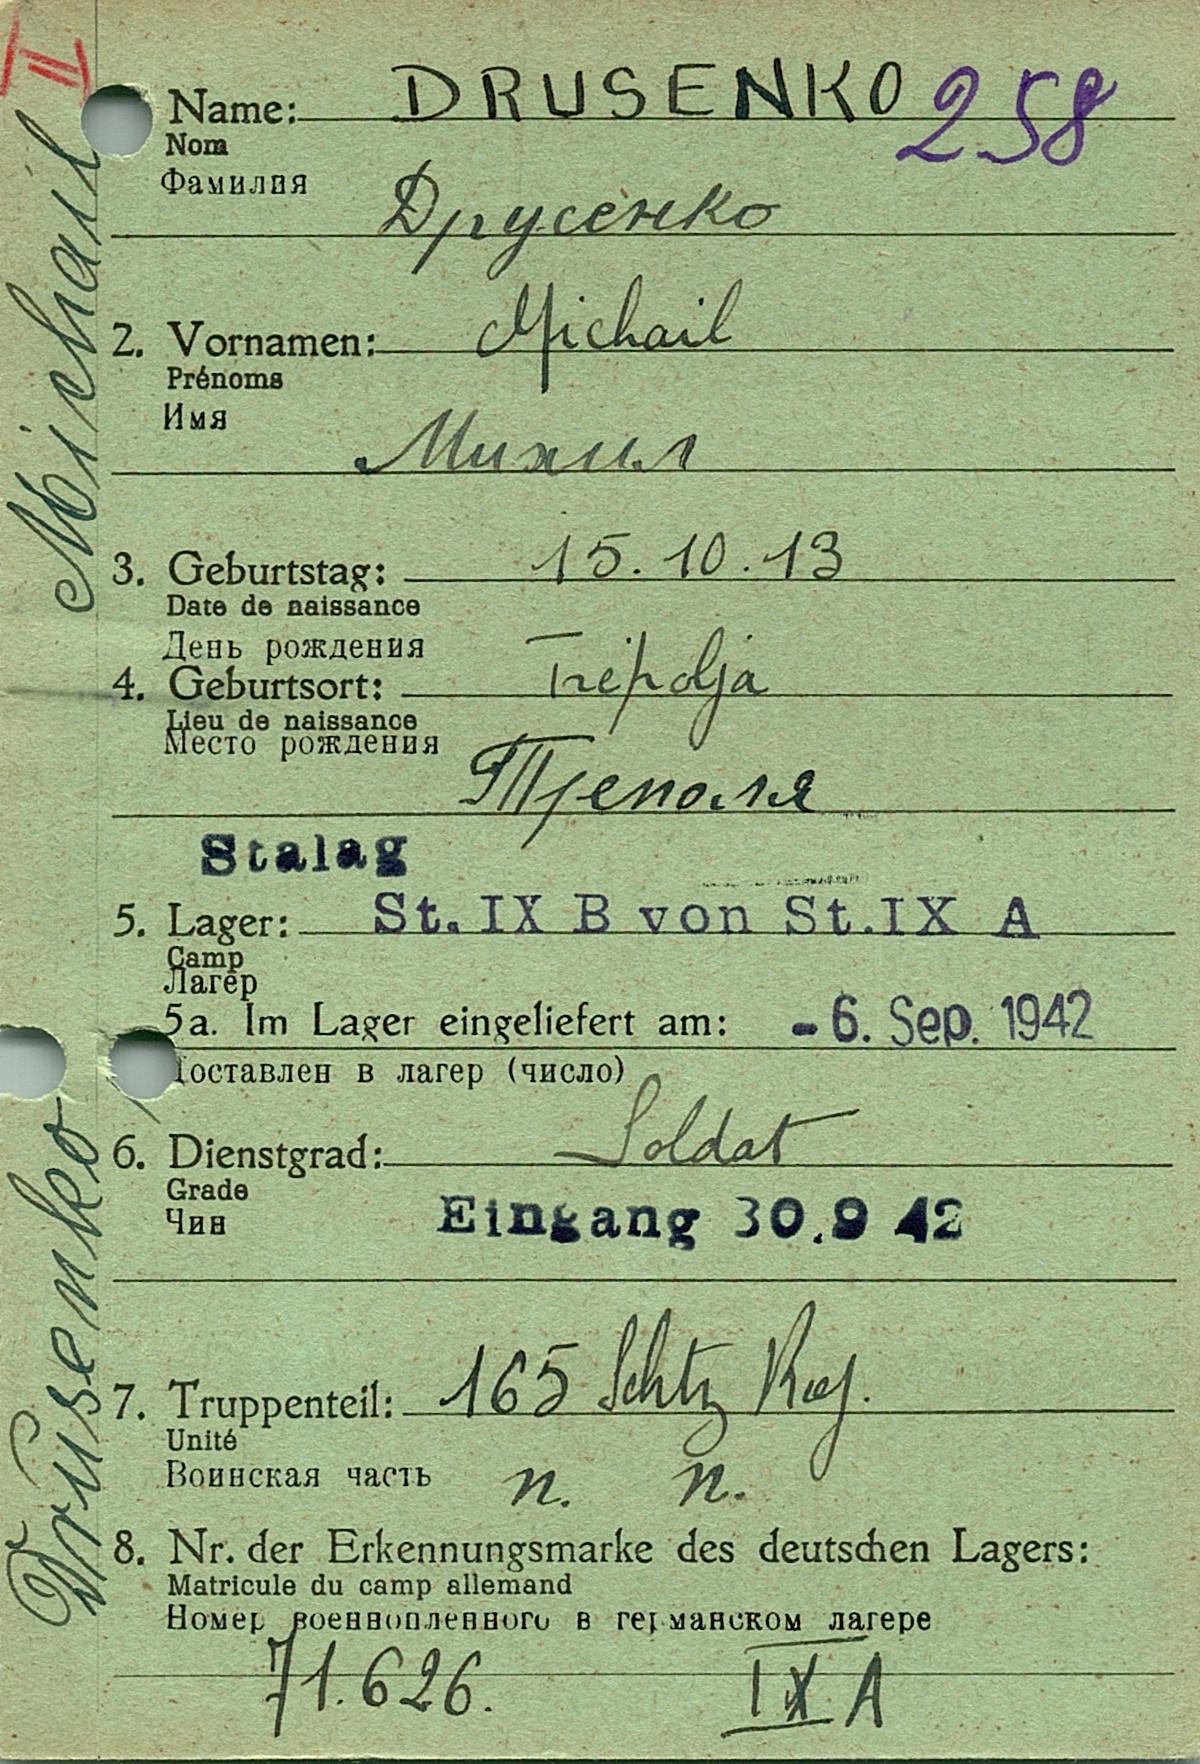 II
Name: DRUSENKO 258
Nom
Фамилия
Друсенко
2. Vornamen: Michail
Prénoms
Имя
Михил
3. Geburtstag: 15.10.13
Date de naissance
День рождения
4. Geburtsort: Trepolja
Lieu de naissance
Место рождения
Треполя
Stalag
5. Lager: St. IX B von St. IX A
Camp
Лагер
5a. Im Lager eingeliefert am: -6. Sep. 1942
Доставлен в лагер (число)
6. Dienstgrad: Soldat
Grade
Чин
Eingang 30.9 42
7. Truppenteil: 165 Schtz Reg.
Unité
Воинская часть п. п.
8. Nr. der Erkennungsmarke des deutschen Lagers:
Matricule du camp allemand
Номер военнопленного в германском лагере
71.626. IX A
Drusenko Michail